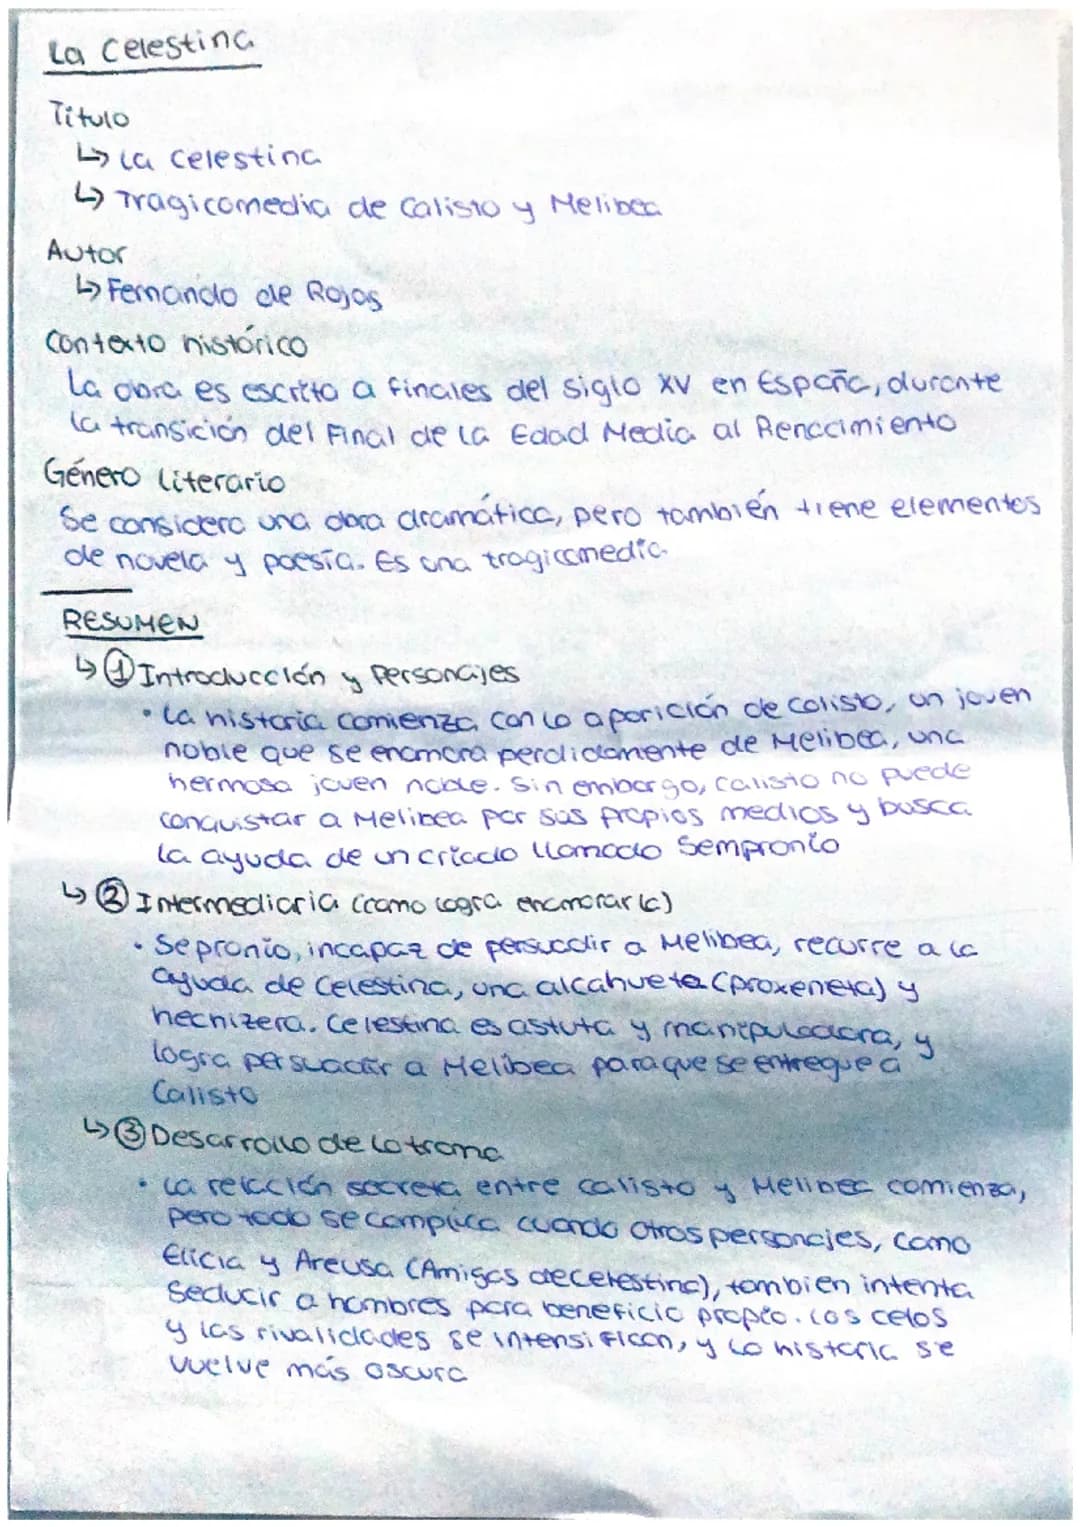 La Celestina
Título
↳ La celestina
↳ Tragicomedia de Calisto y Melibea
Autor
↳ Fernando de Rojas
Contexto histórico
La obra es escrito a finales del siglo XV en España, durante
la transición del Final de la Edad Media al Renacimiento
Género literario
Se considera una obra dramática, pero también tiene elementos
de novela y poesía. Es una tragicomedia.
RESUMEN
↳ ① Introducción y Personajes
• La historia comienza con la aparición de Calisto, un joven
noble que se enamora perdidamente de Melibea, una
hermosa joven noble. Sin embargo, Calisto no puede
conquistar a Melibea por sus propios medios y busca
la ayuda de un criado llamado Sempronio
↳ ② Intermediaria (como logra enamorarla)
• Sepronio, incapaz de persuadir a Melibea, recurre a la
ayuda de Celestina, una alcahueta (proxeneta) y
hechizera. Celestina es astuta y manipuladora, y
logra persuadir a Melibea para que se entregue a
Calisto
↳ ③ Desarrollo de la trama
• La relación secreta entre Calisto y Melibea comienza,
pero todo se complica cuando otros personajes, como
Elicia y Areusa (Amigas de celestina), tambien intenta
Seducir a hombres para beneficio propio. Los celos
y las rivalidades se intensifican, y la historia se
vuelve más oscura